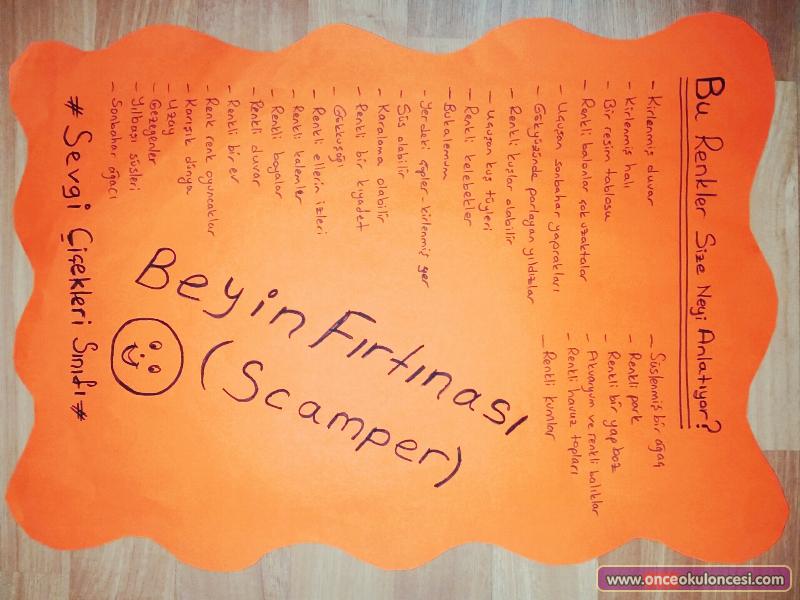 Bu Renkler Size Neyi Anlatıyor?
- Kirlenmiş duvar
- Kirlenmiş halı
- Bir resim tablosu
- Renkli balonlar çok uzaktalar
- Uçuşan sonbahar yaprakları
- Gökyüzünde parlayan yıldızlar
- Renkli kuşlar olabilir
- Uçuşan kuş tüyleri
- Renkli kelebekler
- Bukalemun
- Yerdeki çöpler - kirlenmiş yer
- Süs olabilir
- Karalama olabilir
- Renkli bir kıyafet
- Gökkuşağı
- Renkli ellerin izleri
- Renkli kalemler
- Renkli boyalar
- Renkli duvar
- Renkli bir ev
- Renk renk oyuncaklar
- Karışık dünya
- Uzay
- Gezegenler
- Yılbaşı süsleri
- Sonbahar ağacı
- Süslenmiş bir ağaç
- Renkli park
- Renkli bir yapboz
- Akvaryum ve renkli balıklar
- Renkli havuz topları
- Renkli kumlar
Beyin Fırtınası
(Scamper)
# Sevgi Çiçekleri Sınıfı #
www.onceokuloncesi.com